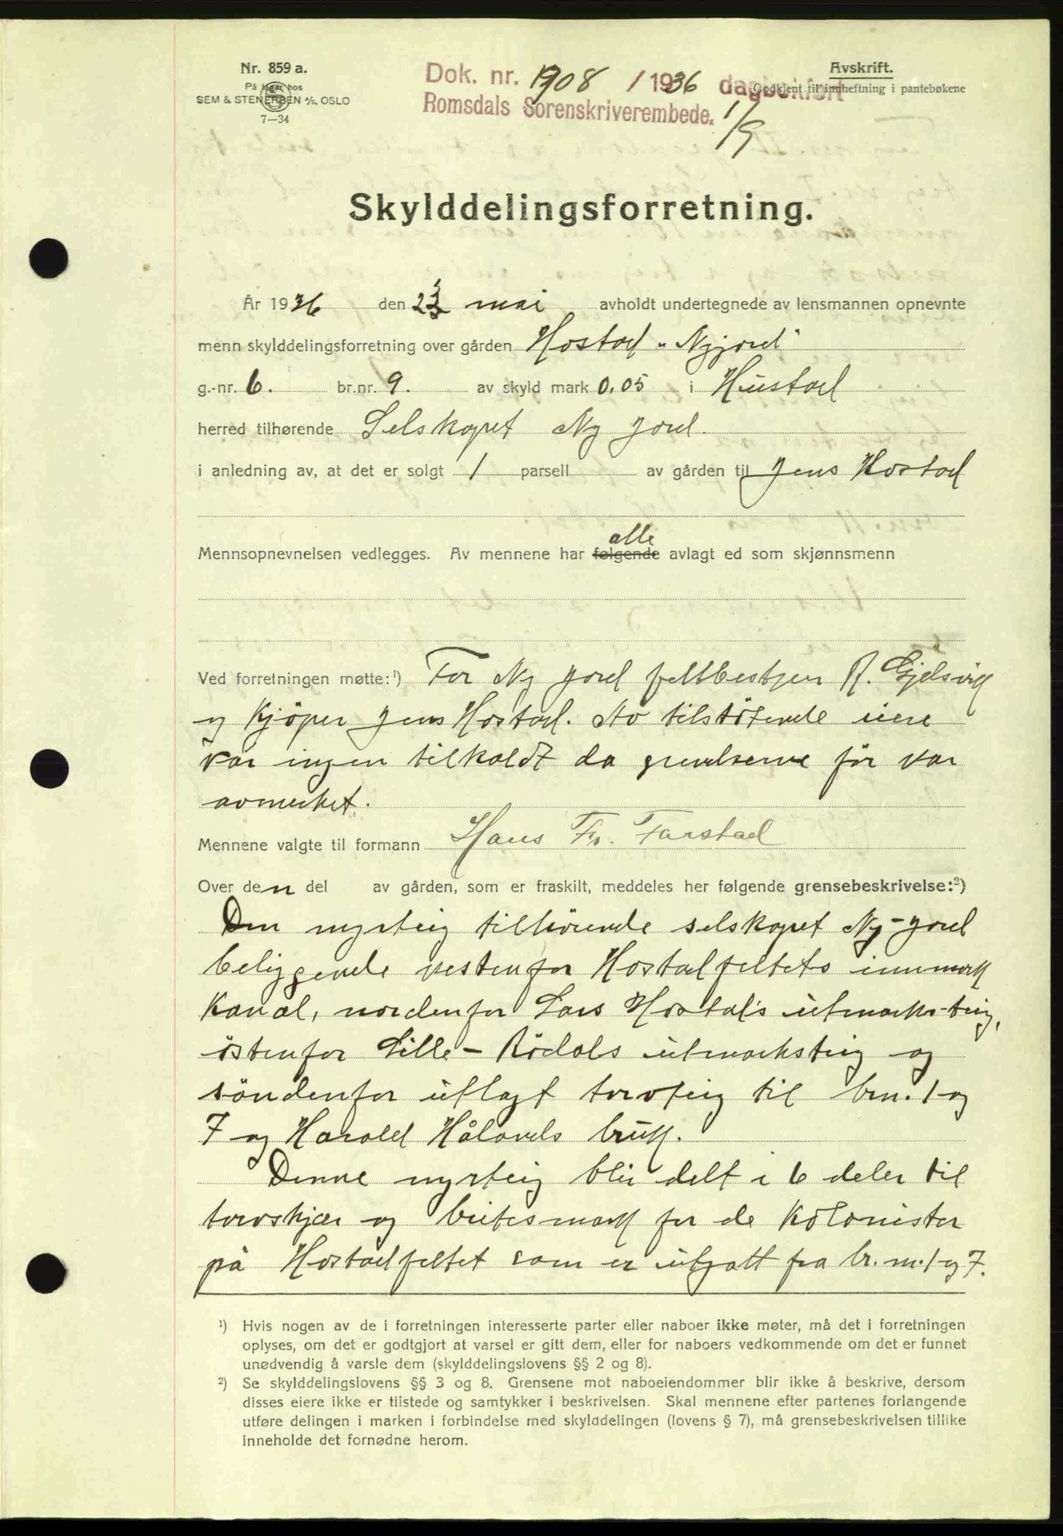 Nr. 859 a.
På lager hos
SEM & STENERSEN A/S, OSLO
7—34
Dok. nr. 1908 / 1936 dagbokført
Romsdals Sorenskriverembede. 1/9
Avskrift.
Godkjent til innheftning i pantebøkene
Skylddelingsforretning.
År 1936 den 23 mai avholdt undertegnede av lensmannen opnevnte
menn skylddelingsforretning over gården Hostad „Nyjord"
g.-nr. 6. br.nr. 9. av skyld mark 0.05 i Hustad
herred tilhørende Selskapet Ny Jord.
i anledning av, at det er solgt 1 parsell av gården til Jens Hostad
alle
Mennsopnevnelsen vedlegges. Av mennene har følgende avlagt ed som skjønnsmenn
Ved forretningen møtte:¹) For Ny Jord feltbestyrer R. Gjelsvik
og Kjøper Jens Hostad. Av tilstötende eiere
var ingen tilkaldt da grendserne før var
avmerket.
Mennene valgte til formann Hans Fr. Farstad
Over den del av gården, som er fraskilt, meddeles her følgende grensebeskrivelse:²)
Den myrteig tilhørende selskapet Ny-jord
beliggende vestenfor Hostadfeltets innmark
Kanal, nordenfor Lars Hostad's utmarks-teig,
östenfor Lille-Rödals utmarksteig og
söndenfor utlagt torvteig til brn. 1 og
7 og Harald Hålands bruk.
Denne myrteig blir delt i 6 deler til
torvskjær og beitesmark for de Kolonister
på Hostadfeltet som er utgått fra br.nr. 1 og 7.
¹) Hvis nogen av de i forretningen interesserte parter eller naboer ikke møter, må det i forretningen
oplyses, om det er godtgjort at varsel er gitt dem, eller for naboers vedkommende om det er funnet
unødvendig å varsle dem (skylddelingslovens §§ 2 og 8).
²) Se skylddelingslovens §§ 3 og 8. Grensene mot naboeiendommer blir ikke å beskrive, dersom
disses eiere ikke er tilstede og samtykker i beskrivelsen. Skal mennene efter partenes forlangende
utføre delingen i marken i forbindelse med skylddelingen (lovens § 7), må grensebeskrivelsen tillike
inneholde det fornødne herom.